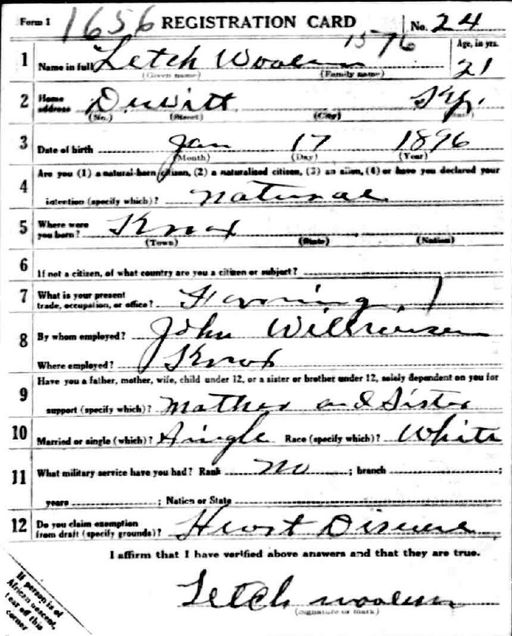 Form 1 1656 REGISTRATION CARD No. 24
1576 Age, in yrs.
1 Name in full Letch Woolum 21
(Given name) (Family name)
2 Home address Dewitt Ky.
(No.) (Street) (City) (State)
3 Date of birth Jan 17 1896
(Month) (Day) (Year)
Are you (1) a natural-born citizen, (2) a naturalized citizen, (3) an alien, (4) or have you declared your
4 intention (specify which)? natural
5 Where were you born? Knox
(Town) (State) (Nation)
6 If not a citizen, of what country are you a citizen or subject?
7 What is your present trade, occupation, or office? Farming
8 By whom employed? John
Where employed? Knox
Have you a father, mother, wife, child under 12, or a sister or brother under 12, solely dependent on you for
9 support (specify which)? Mother and Sister
10 Married or single (which)? Single Race (specify which)? White
11 What military service have you had? Rank no ; branch ;
years ; Nation or State
12 Do you claim exemption from draft (specify grounds)? Heart Disease
I affirm that I have verified above answers and that they are true.
Letch Woolum
(Signature or mark)
If person is of
African descent,
tear off this
corner